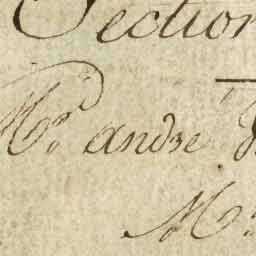 Section
Mr. andre
Mr